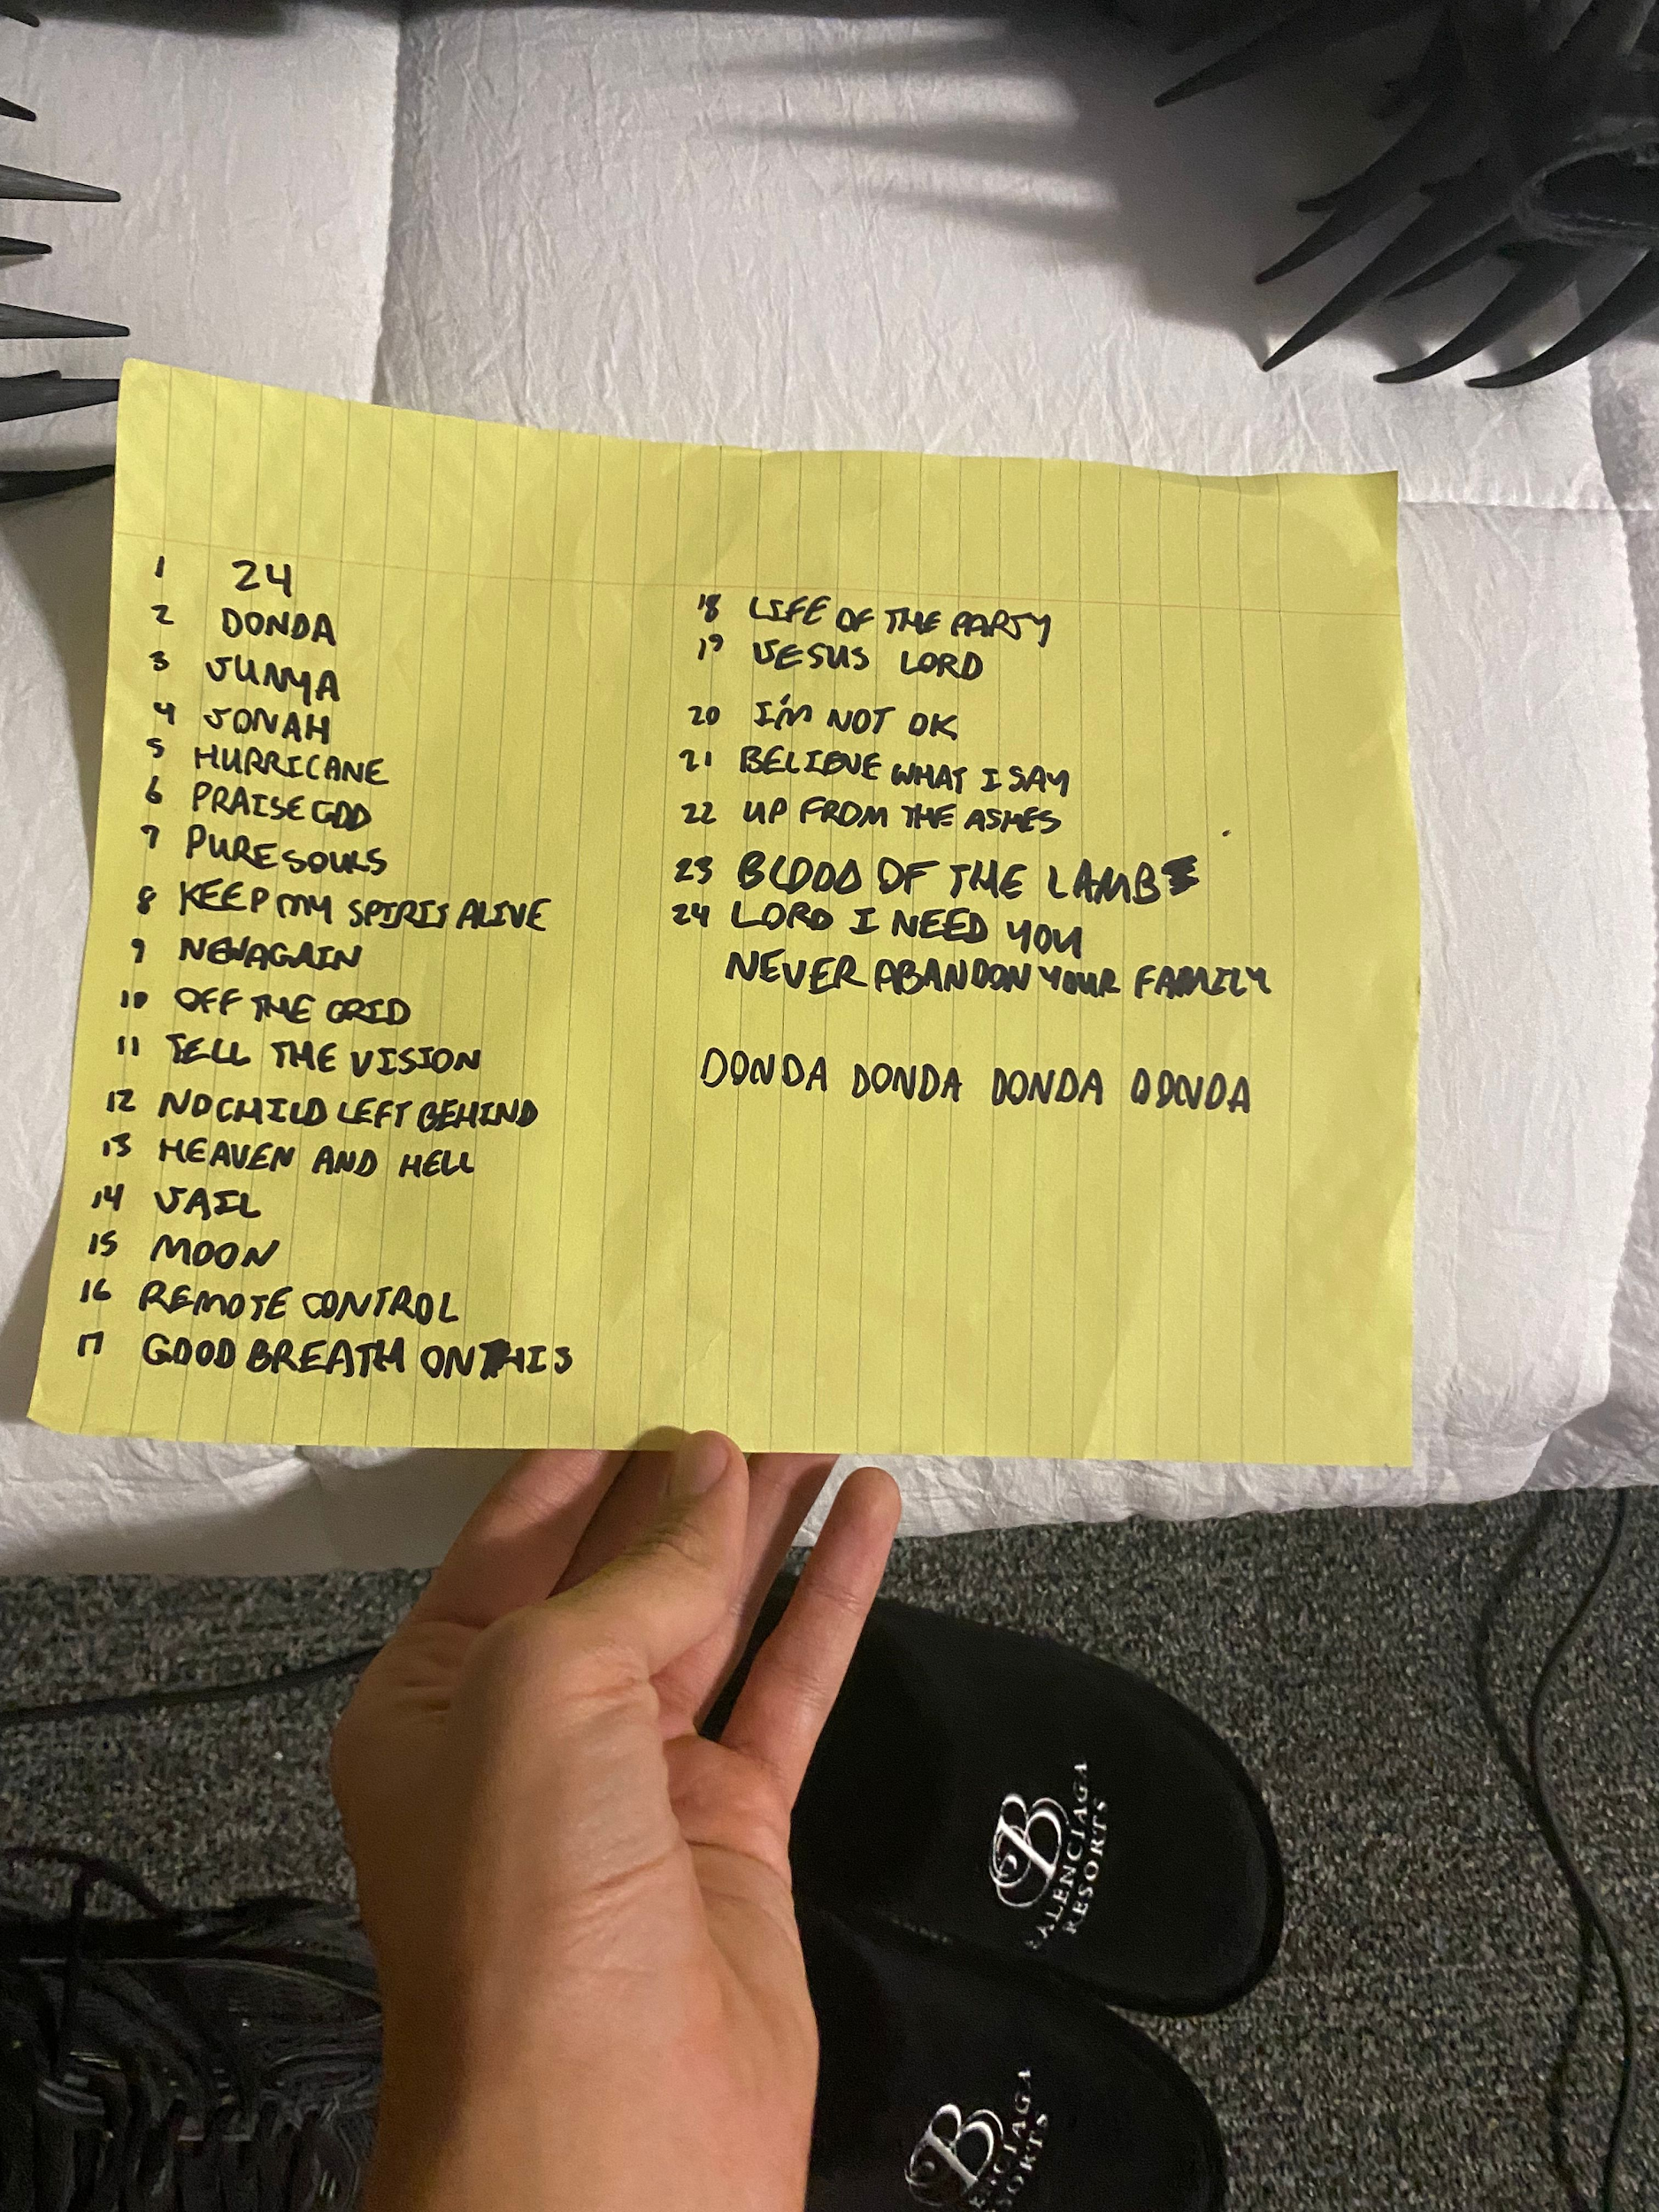 1 24
2 DONDA
3 JUNYA
4 JONAH
5 HURRICANE
6 PRAISE GOD
7 PURE SOULS
8 KEEP MY SPIRIT ALIVE
9 NEW AGAIN
10 OFF THE GRID
11 TELL THE VISION
12 NO CHILD LEFT BEHIND
13 HEAVEN AND HELL
14 JAIL
15 MOON
16 REMOTE CONTROL
17 GOOD BREATH ON THIS
18 LIFE OF THE PARTY
19 JESUS LORD
20 I'M NOT OK
21 BELIEVE WHAT I SAY
22 UP FROM THE ASHES
23 BLOOD OF THE LAMB
24 LORD I NEED YOU
NEVER ABANDON YOUR FAMILY
DONDA DONDA DONDA DONDA
B
BALENCIAGA
RESORTS
B